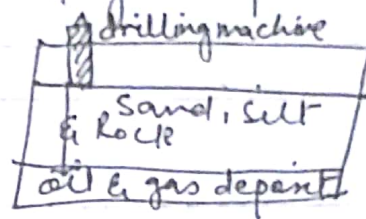 drilling machine
Sand, Silt
& Rock
oil & gas deposit